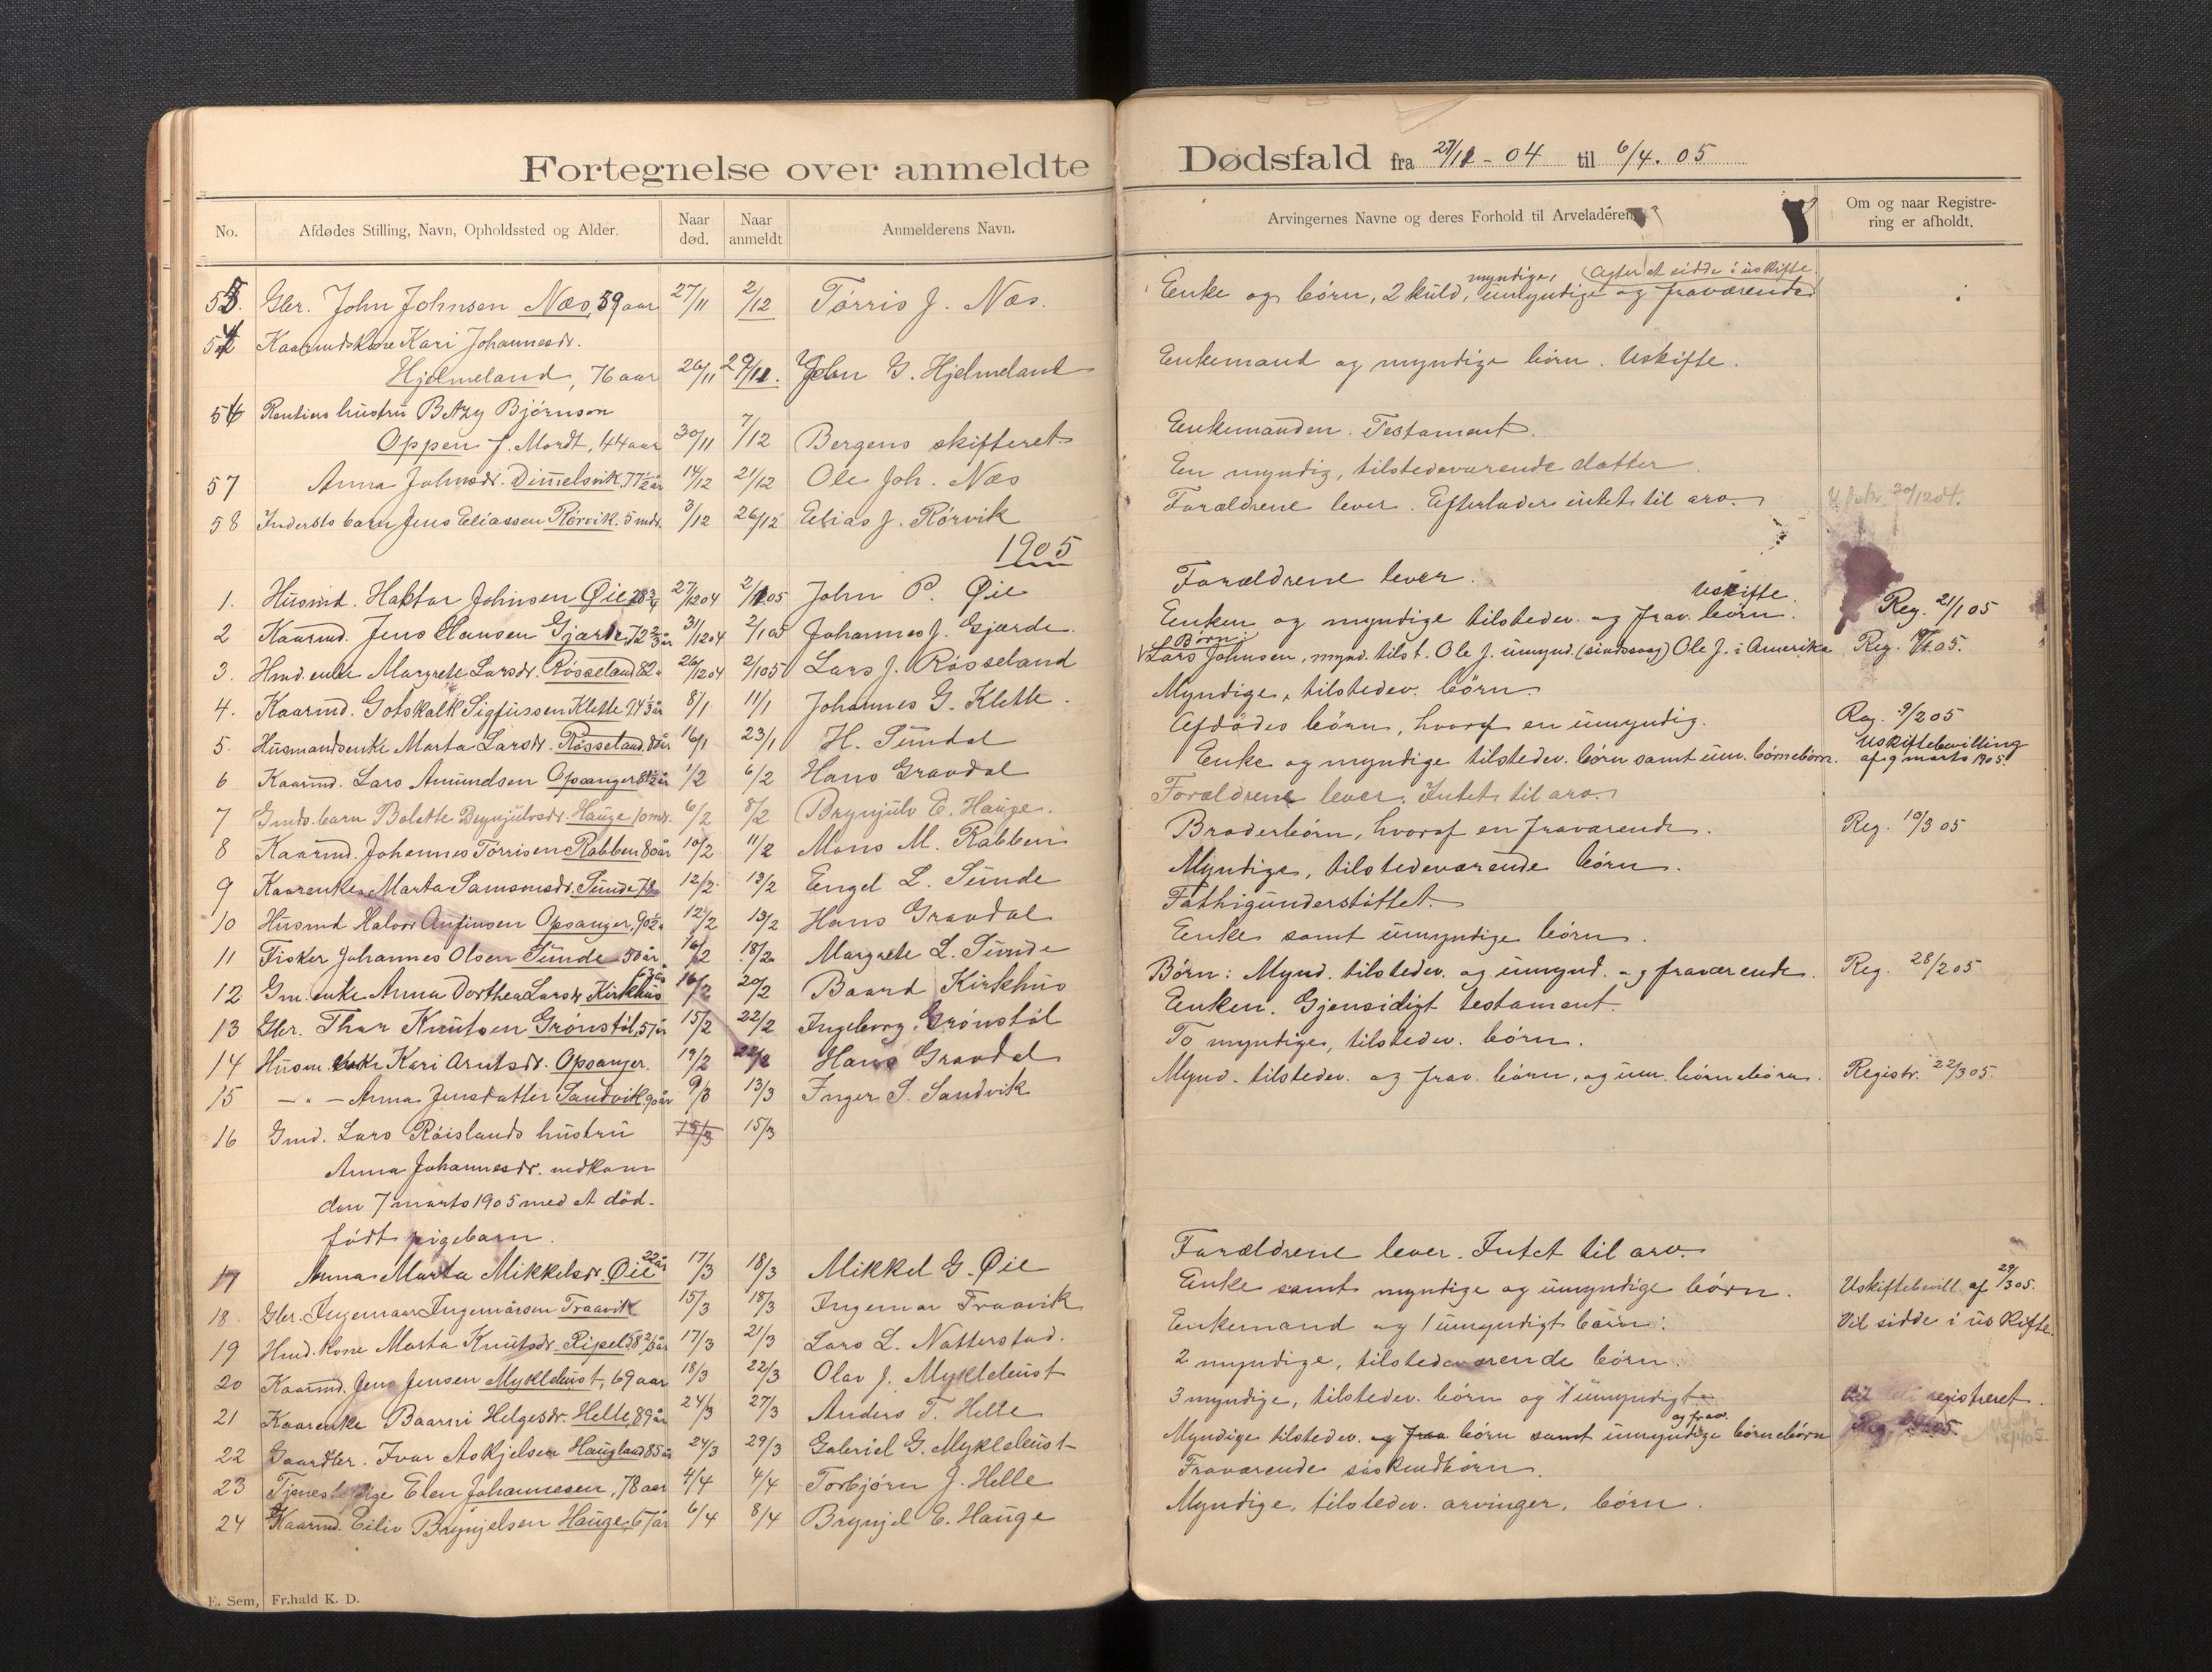 Fortegnelse over anmeldte
No.
Afdødes Stilling, Navn, Opholdssted og Alder.
Naar død.
Naar anmeldt
Anmelderens Navn.
55. Gbr. John Johnsen Næs, 59 aar 27/11 2/12 Tørris J. Næs.
Kaarmdskone Kari Johannesdr.
Hjelmeland, 76 aar 26/11 John G. Hjelmeland
56 Rentiers hustru Betzy Bjørnson
Oppen f. Mordt, 44 aar 30/11 7/12 Bergens skifteret
57 Anna Johnsdr. Dimelsvik, 77½ år 14/12 21/12 Ole Joh. Næs
58 Indersts barn Jens Eliassen Rørvik. 5 mdr. 3/12 26/12 Elias J. Rørvik
1905
1. Husmd. Haktor Johnsen Øie 28¾ 27/12 04 2/1 05 John P. Øie
2 Kaarmd. Jens Hansen Gjærde 72⅔ år 31/12 04 2/1 05 Johannes J. Gjærde.
3. Hmd. enke Margrete Larsdr. Røsseland 82 26/12 04 2/1 05 Lars J. Røsseland
4. Kaarmd. Gotskalk Sigfussen Klette 94⅓ år 8/1 11/1 Johannes G. Klette.
5. Husmandsenke Marta Larsdr. Røsseland, 80 år 16/1 23/1 H. Sundal
6 Kaarmd. Lars Amundsen Opsanger 8½ år 1/2 6/2 Hans Gravdal
7 Gmds. barn Bolette Brynjulvsdr. Hauge 10 md. 6/2 8/2 Brynjulv E. Hauge.
8 Kaarmd. Johannes Tørrisen Rabben 80 år 10/2 11/2 Mons M. Rabben
9 Kaarenke Marta Samsonsdr. Sunde 78 12/2 13/2 Engel L. Sunde
10 Husmd Halvor Anfinsen Opsanger, 90½ 12/2 13/2 Hans Gravdal
11 Fisker Johannes Olsen Sunde 50 år 16/2 18/2 Margrete L. Sunde
12 Gm. enke Anna Dorthea Larsdr. Kirkhus 63 år 16/2 20/2 Baard Kirkhus
13 Gbr. Thor Knutsen Grønstøl, 57 år 15/2 22/2 Ingeborg Grønstøl
14 Husm. enke Kari Arntsdr. Opsanger. 19/2 22/2 Hans Gravdal
15 - " - Anna Jensdatter Sandvik 90 år 9/3 13/3 Inger S. Sandvik
16 Gmd. Lars Røislands hustru 15/3 15/3
Anna Johannesdr. nedkom
den 7 marts 1905 med et död-
født pigebarn.
17 Anna Marta Mikkelsdr. Øie 22 år 17/3 18/3 Mikkel G. Øie
18. Gbr. Ingemaar Ingemarsen Traavik 15/3 18/3 Ingemar Traavik
19 Hmd. kone Marta Knutsdr. Ripel 17/3 21/3 Lars L. Natterstad.
20 Kaarmd. Jens Jensen Myklebust, 69 aar 18/3 22/3 Olav J. Myklebust
21 Kaarenke Baarni Helgesdr. Helle, 89 år 24/3 27/3 Anders T. Helle
22 Gaardbr. Ivar Askjelsen Haugland 85 år 24/3 29/3 Gabriel G. Myklebust
23 Tjenestepige Elen Johannesen, 78 aar 4/4 4/4 Torbjørn J. Helle
24 Kaarmd. Eiliv Brynjelsen Hauge, 67 år 6/4 8/4 Brynjel E. Hauge
E. Sem, Fr.hald K. D.
Dødsfald fra 27/11 - 04 til 6/4. 05
Arvingernes Navne og deres Forhold til Arveladeren
Om og naar Registre-
ring er afholdt.
myndige, (Agter at sidde i uskifte.
Enke og börn, 2 kuld, umyndige og fraværende
Enkemand og myndige börn. Uskifte.
Enkemanden. Testament.
En myndig, tilstedeværende datter.
Forældrene lever. Efterlader intet til arv. 30/12 04.
Forældrene lever.
Uskifte.
Enken og myndige tilstedev. og frav. börn. Reg. 21/1 05
Børn:
Lars Johnsen, mynd. tilst. Ole J. umynd. (sindssvag) Ole J. i Amerika Reg. 05.
Myndige, tilstedev. börn.
Afdödes börn, hvoraf en umyndig. Reg. 9/2 05
Enke og myndige tilstedev. börn samt um. börnebörn. Uskiftebevilling
af 9 marts 1905.
Forældrene lever. Intet til arv.
Broderbörn, hvoraf en fraværende. Reg. 10/3 05
Myndige, tilstedeværende börn.
Fattigunderstöttet.
Enke samt umyndige börn.
Børn: Mynd. tilstedev. og umynd. og fraværende. Reg. 28/2 05
Enken. Gjensidigt testament.
To myndige, tilstedev. börn.
Mynd. tilstedev. og frav. börn, og um. börnebörn. Registr. 22/3 05.
Forældrene lever. Intet til arv.
Enke samt myndige og umyndige börn. Uskiftebevill. af 29/3 05.
Enkemand og 1 umyndigt barn. Vil sidde i uskifte.
2 myndige, tilstedeværende börn.
3 myndige, tilstedev. börn og 1 umyndigt registreret
og frav.
Myndige tilstedev. og frav börn samt umyndige börnebörn Reg. 05.
Fraværende søskendbörn.
Myndige, tilstedev. arvinger, börn.